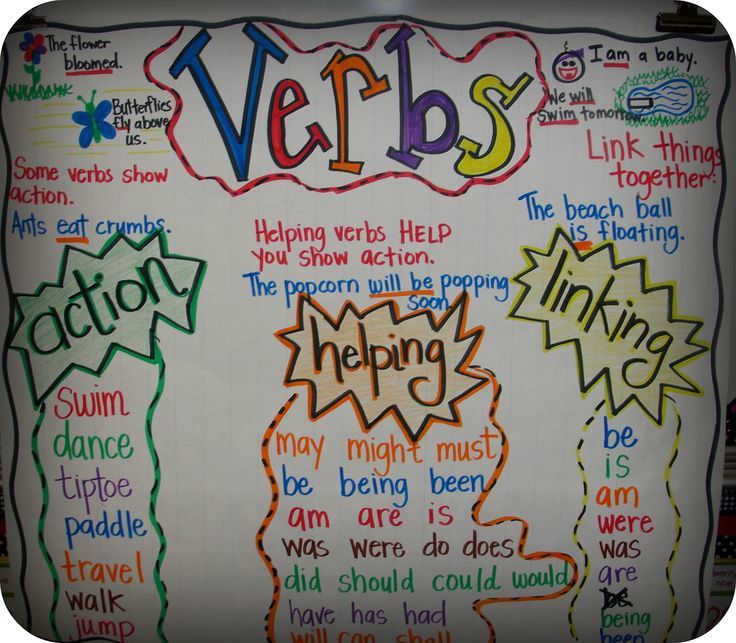 Verbs
The flower
bloomed.
Butterflies
fly above
us.
Some verbs show
action.
Ants eat crumbs.
action
swim
dance
tiptoe
paddle
travel
walk
jump
Helping verbs HELP
you show action.
The popcorn will be popping
soon.
helping
may might must
be being been
am are is
was were do does
did should could would
have has had
will can shall
I am a baby.
We will
swim tomorrow.
Link things
together!
The beach ball
is floating.
linking
be
is
am
were
was
are
being
been